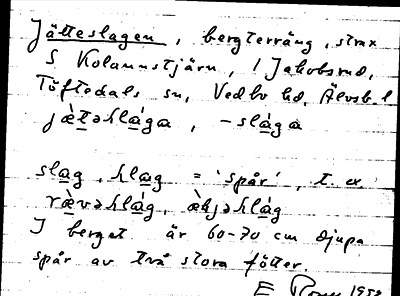 Jätteslagen, bergterräng, strax
S Kolannstjärn, / Jakobsrud,
Töftedals sn, Vedbo hd, Älvsb. l
jæ̀təhlága, -slága

slag, hlag = 'spår', t. ex
ræ̀vəhlág, æ̀ljəhlág
I berget är 60-70 cm djupa
spår av två stora fötter.
E 1952